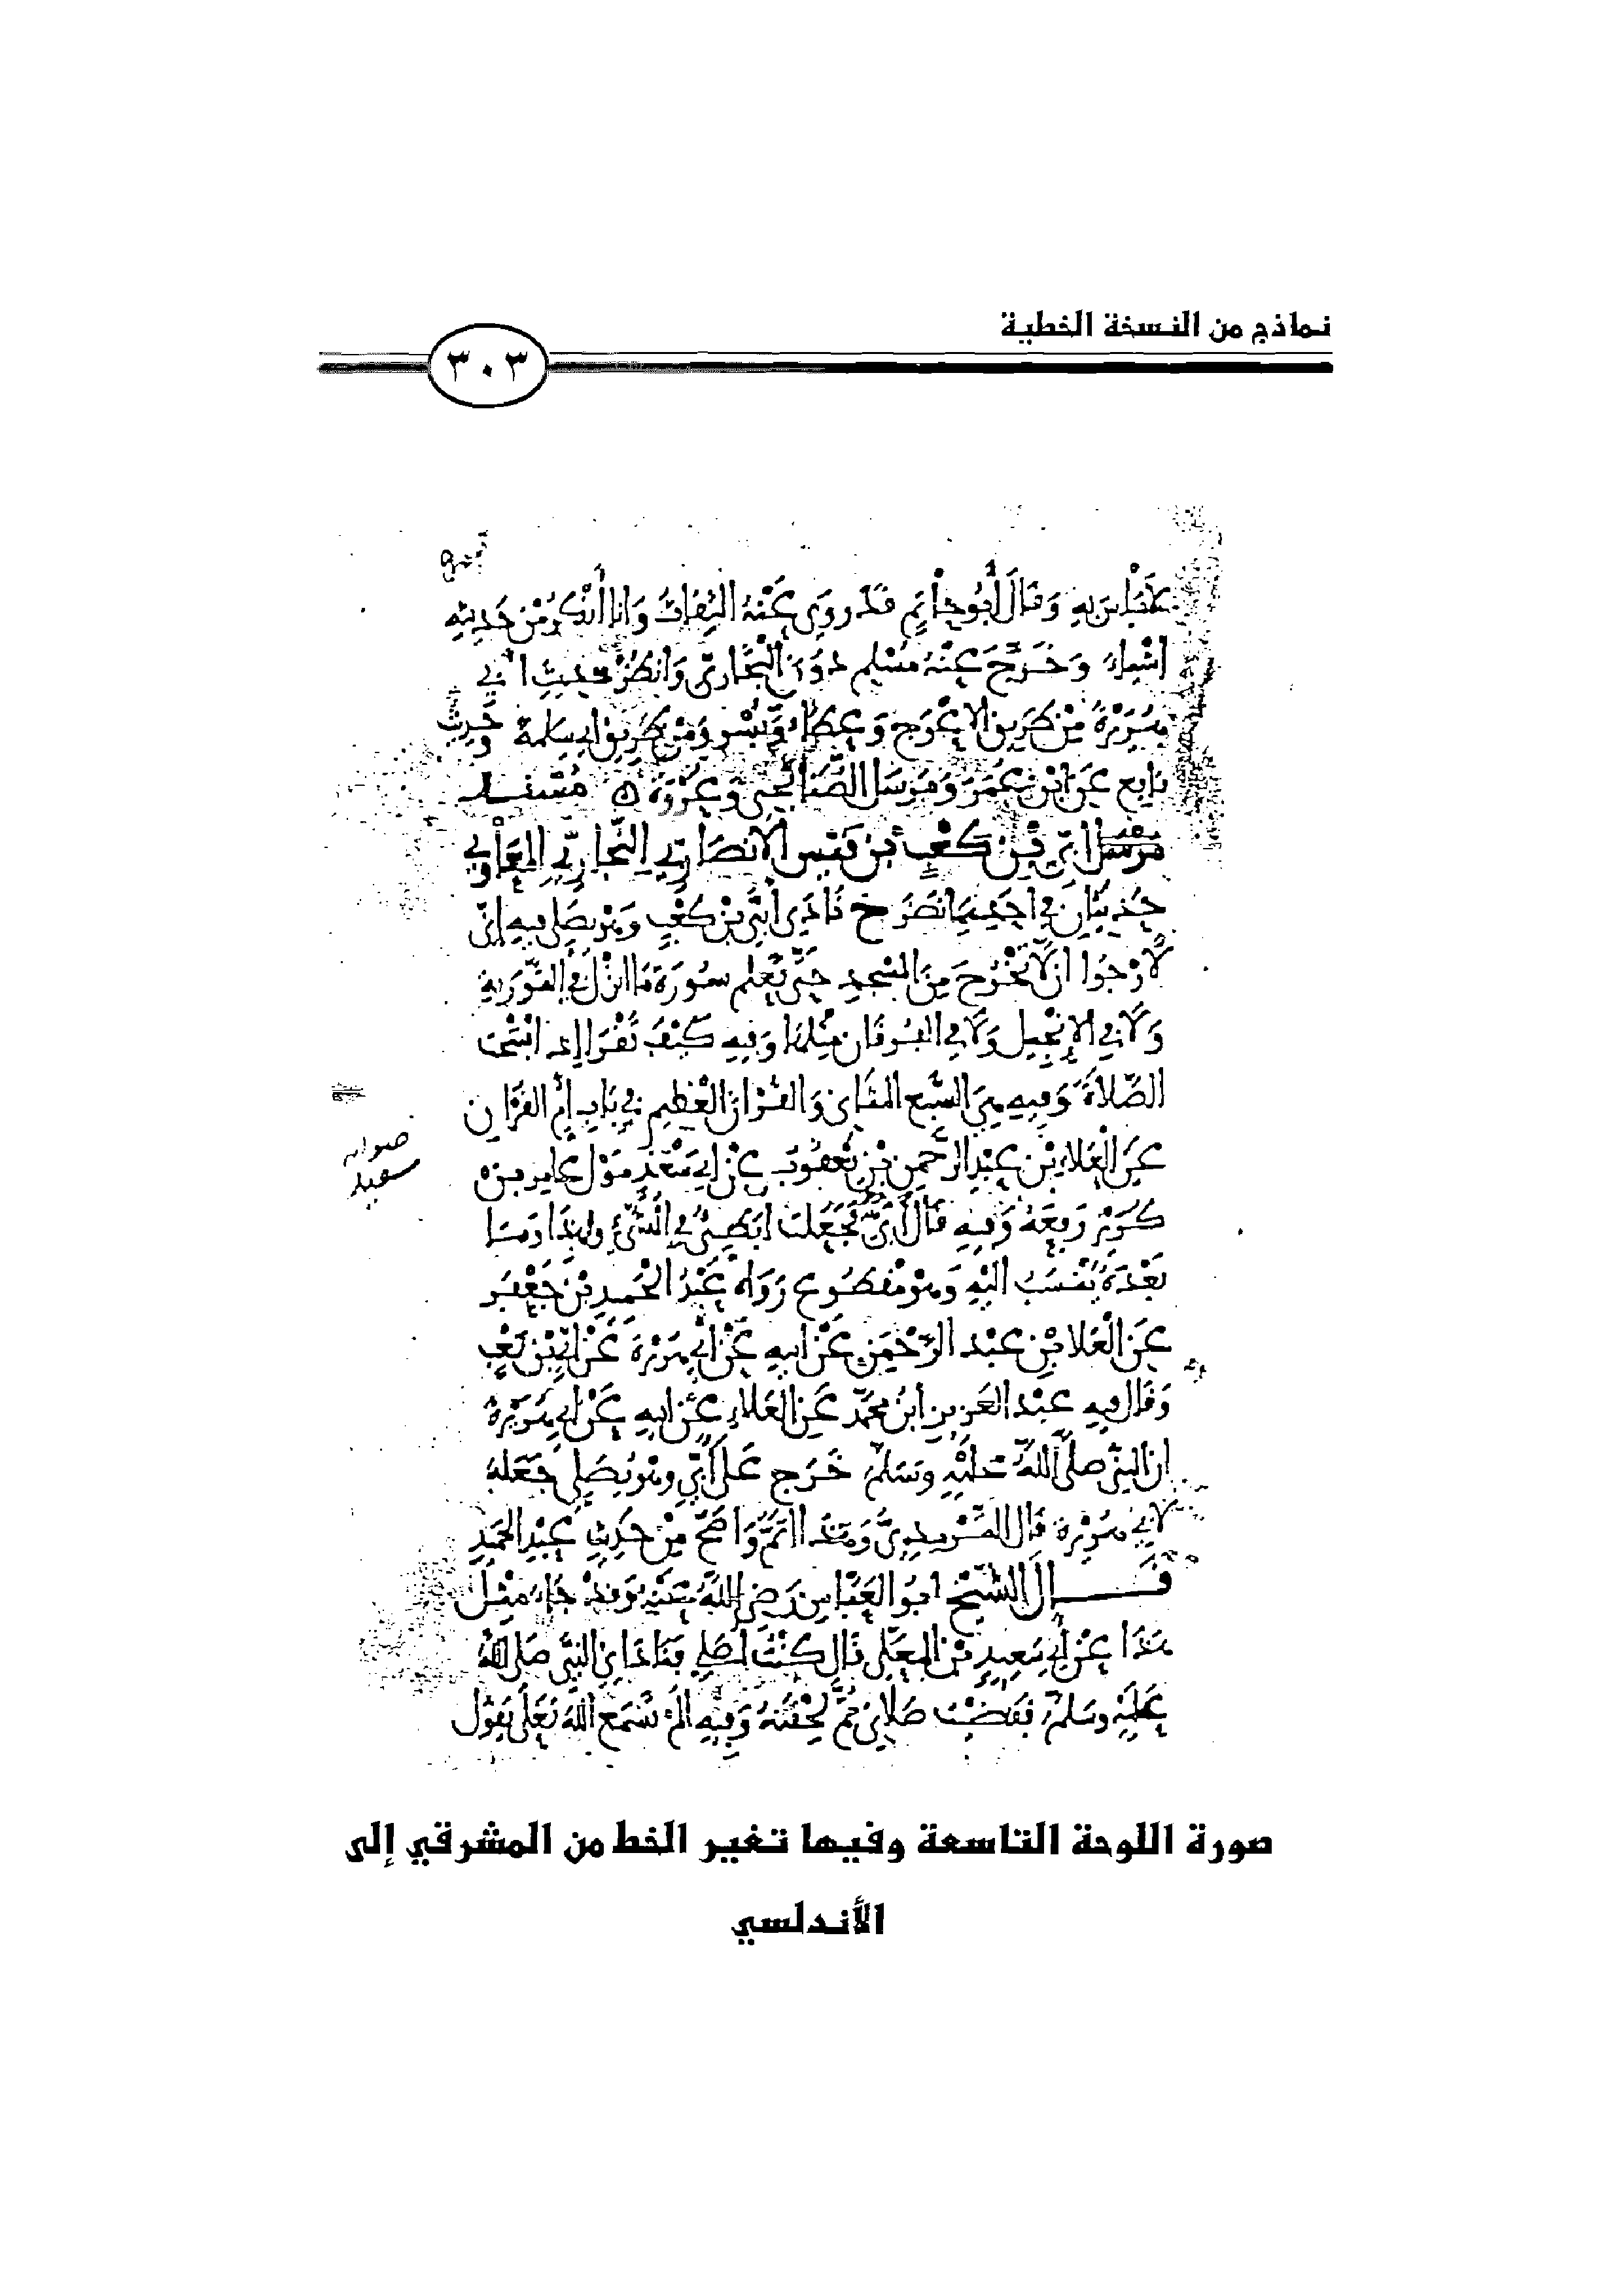 نماذج من النسخة الخطية
٣٠٣
باس به وقال أبو حاتم قد روى عنه الثقات وانا أنكر من حديثه
اشياء وخرج عنه مسلم دون البخاري وانظر حديث ابي
هريرة من طريق الاعرج وعطاء وبسر ومن طريق ابي سلمة وحديث
نابع عن ابن عمر ومرسل الصنابحي وعروة ه مسند
أبي بن كعب بن قيس الانصاري النجاري المعاوي
حديثان في احدهما نظر خ نادى أبي بن كعب وهو يصلي فيه إني
لارجوا ان لا تخرج من المسجد حتى تعلم سورة ما انزل في التورية
ولا في الإنجيل ولا في الفرقان مثلها وفيه كيف تقرا إذا افتتحت
الصلاة وفيه هي السبع المثاني والقرآن العظيم في باب أم القرآن
عن العلاء بن عبد الرحمن بن يعقوب عن ابي سعد مولى عامر بن
صوابه
سعيد
كريز ربعه وفيه قال أبي فجعلت ابطئ في المشي ولهذا وما
بعده نسب اليه وهو مقطوع رواه عبد الحميد بن جعفر
عن العلا بن عبد الرحمن عن ابيه عن أبي هريرة عن أبي بن كعب
وقال فيه عبد العزيز ابن محمد عن العلاء عن ابيه عن ابي هريرة
ان النبي صلى الله عليه وسلم خرج على أبي وهو يصلي جعله
لابي هريرة قال الترمذي وهذا اتم واصح من حديث عبد الحميد
قال الشيخ ابو العباس رضي الله عنه وقد جاء مثل
هذا عن أبي سعيد بن المعلى قال كنت أصلي فناداني النبي صلى الله
عليه وسلم فقضيت صلاتي ثم لحقته وفيه الم تسمع الله تعلى يقول
صورة اللوحة التاسعة وفيها تغير الخط من المشرقي إلى
الأندلسي